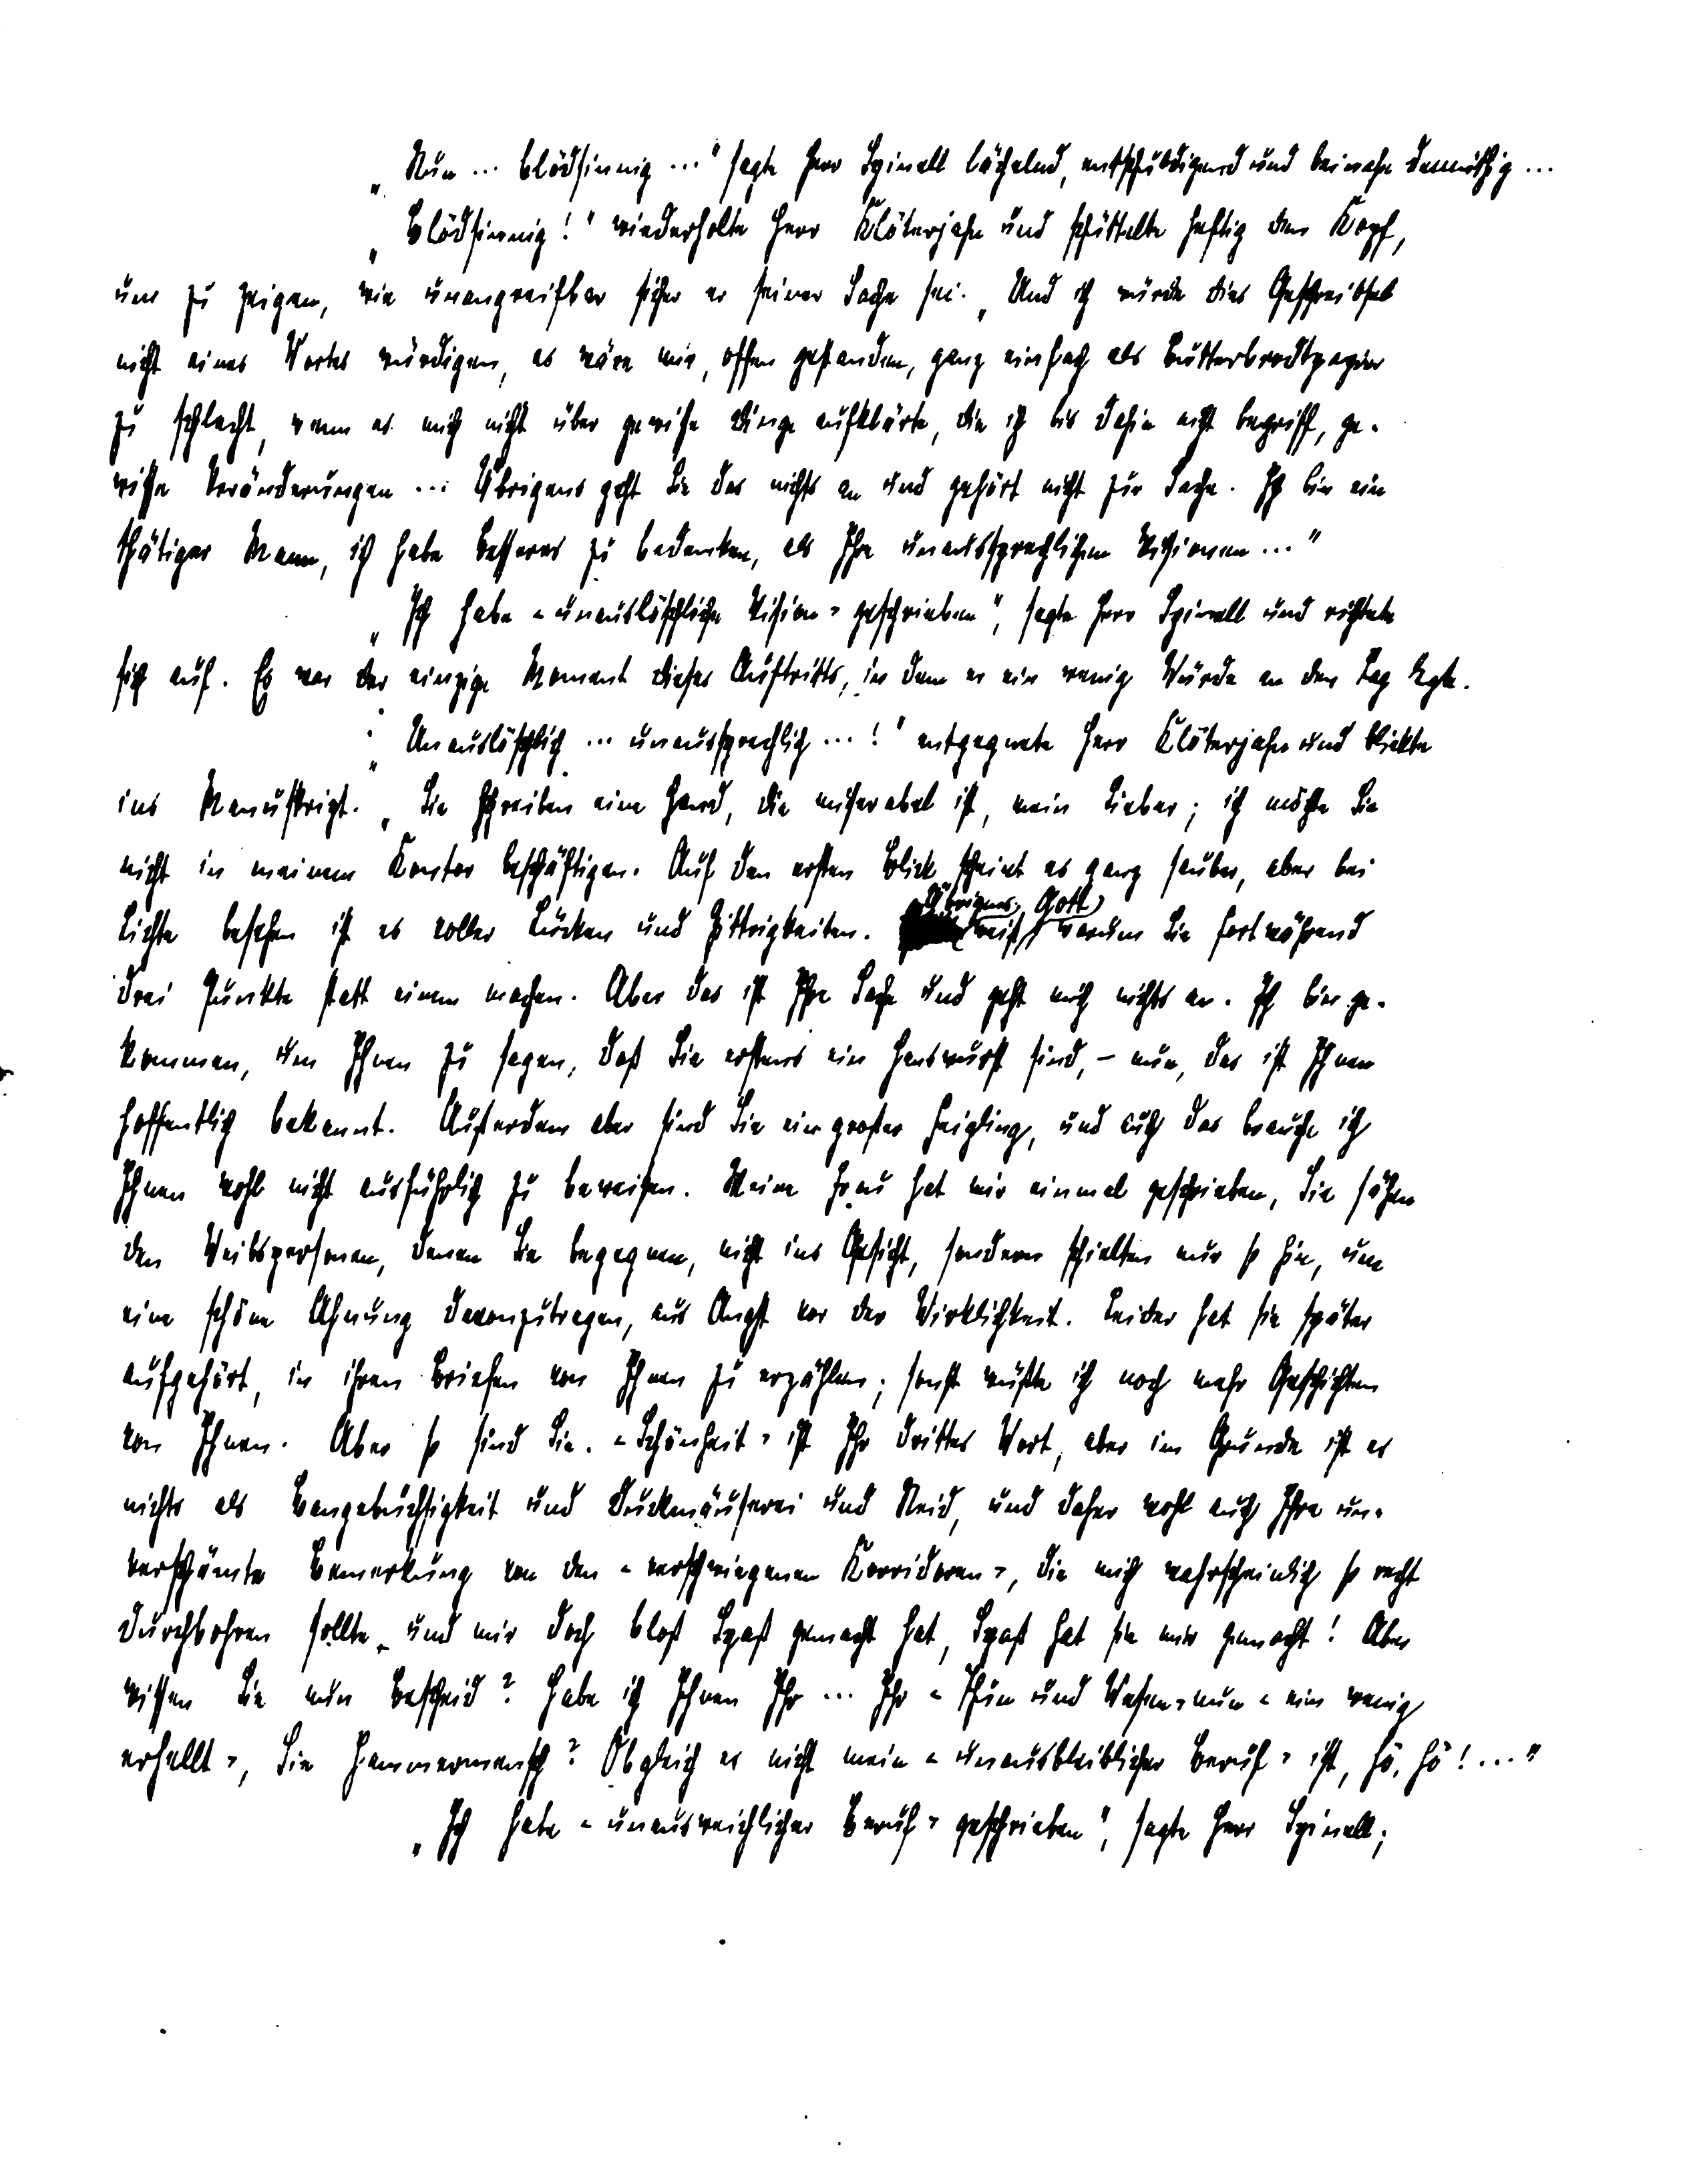 „Nun ... blödsinnig ...“ sagte Herr Spinell lächelnd, entschuldigend und beinahe demüthig ...
„Blödsinnig!“ wiederholte Herr Klöterjahn und schüttelte heftig den Kopf,
um zu zeigen, wie unangreifbar sicher er seiner Sache sei. „Und ich würde dies Geschreibsel
nicht eines Wortes würdigen, es wäre mir, offen gestanden, ganz einfach als Butterbrodtpapier
zu schlecht, wenn es mich nicht über gewisse Dinge aufklärte, die ich bis dahin nicht begriff, ge-
wisse Veränderungen ... Übrigens geht Sie das nichts an und gehört nicht zur Sache. Ich bin ein
thätiger Mann, ich habe Besseres zu bedenken, als Ihre unaussprechlichen Visionen ...“
„Ich habe «unauslöschliche Vision» geschrieben“, sagte Herr Spinell und richtete
sich auf. Es war der einzige Moment dieses Auftritts, in dem er ein wenig Würde an den Tag legte.
„Unauslöschlich ... unaussprechlich ...!“ entgegnete Herr Klöterjahn und blickte
ins Manuskript. „Sie schreiben eine Hand, die miserabel ist, mein Lieber; ich möchte Sie
nicht in meinem Kontor beschäftigen. Auf den ersten Blick scheint es ganz sauber, aber bei
Lichte besehen ist es voller Lücken und Zittrigkeiten. Übrigens, Gott weiß, warum Sie fortwährend
drei Punkte statt einem machen. Aber das ist Ihre Sache und geht mich nichts an. Ich bin ge-
kommen, um Ihnen zu sagen, daß Sie erstens ein Hanswurst sind, – nun, das ist Ihnen
hoffentlich bekannt. Außerdem aber sind Sie ein großer Feigling, und auch das brauche ich
Ihnen wohl nicht ausführlich zu beweisen. Meine Frau hat mir einmal geschrieben, Sie sähen
den Weibspersonen, denen Sie begegnen, nicht ins Gesicht, sondern schielten nur so hin, um
eine schöne Ahnung davonzutragen, aus Angst vor der Wirklichkeit. Leider hat sie später
aufgehört, in ihren Briefen von Ihnen zu erzählen; sonst wüßte ich noch mehr Geschichten
von Ihnen. Aber so sind Sie. «Schönheit» ist Ihr drittes Wort, aber im Grunde ist es
nichts als Bangebüchsigkeit und Duckmäuserei und Neid, und daher wohl auch Ihre un-
verschämte Bemerkung von den «verschwiegenen Korridoren», die mich wahrscheinlich so recht
durchbohren sollte und mir doch bloß Spaß gemacht hat, Spaß hat sie mir gemacht! Aber
wissen Sie nun Bescheid? Habe ich Ihnen Ihr ... Ihr «Thun und Wesen» nun «ein wenig
erhellt», Sie Jammermensch? Obgleich es nicht mein «unausbleiblicher Beruf» ist, hö, hö! ...“
„Ich habe «unausweichlicher Beruf» geschrieben“, sagte Herr Spinell;